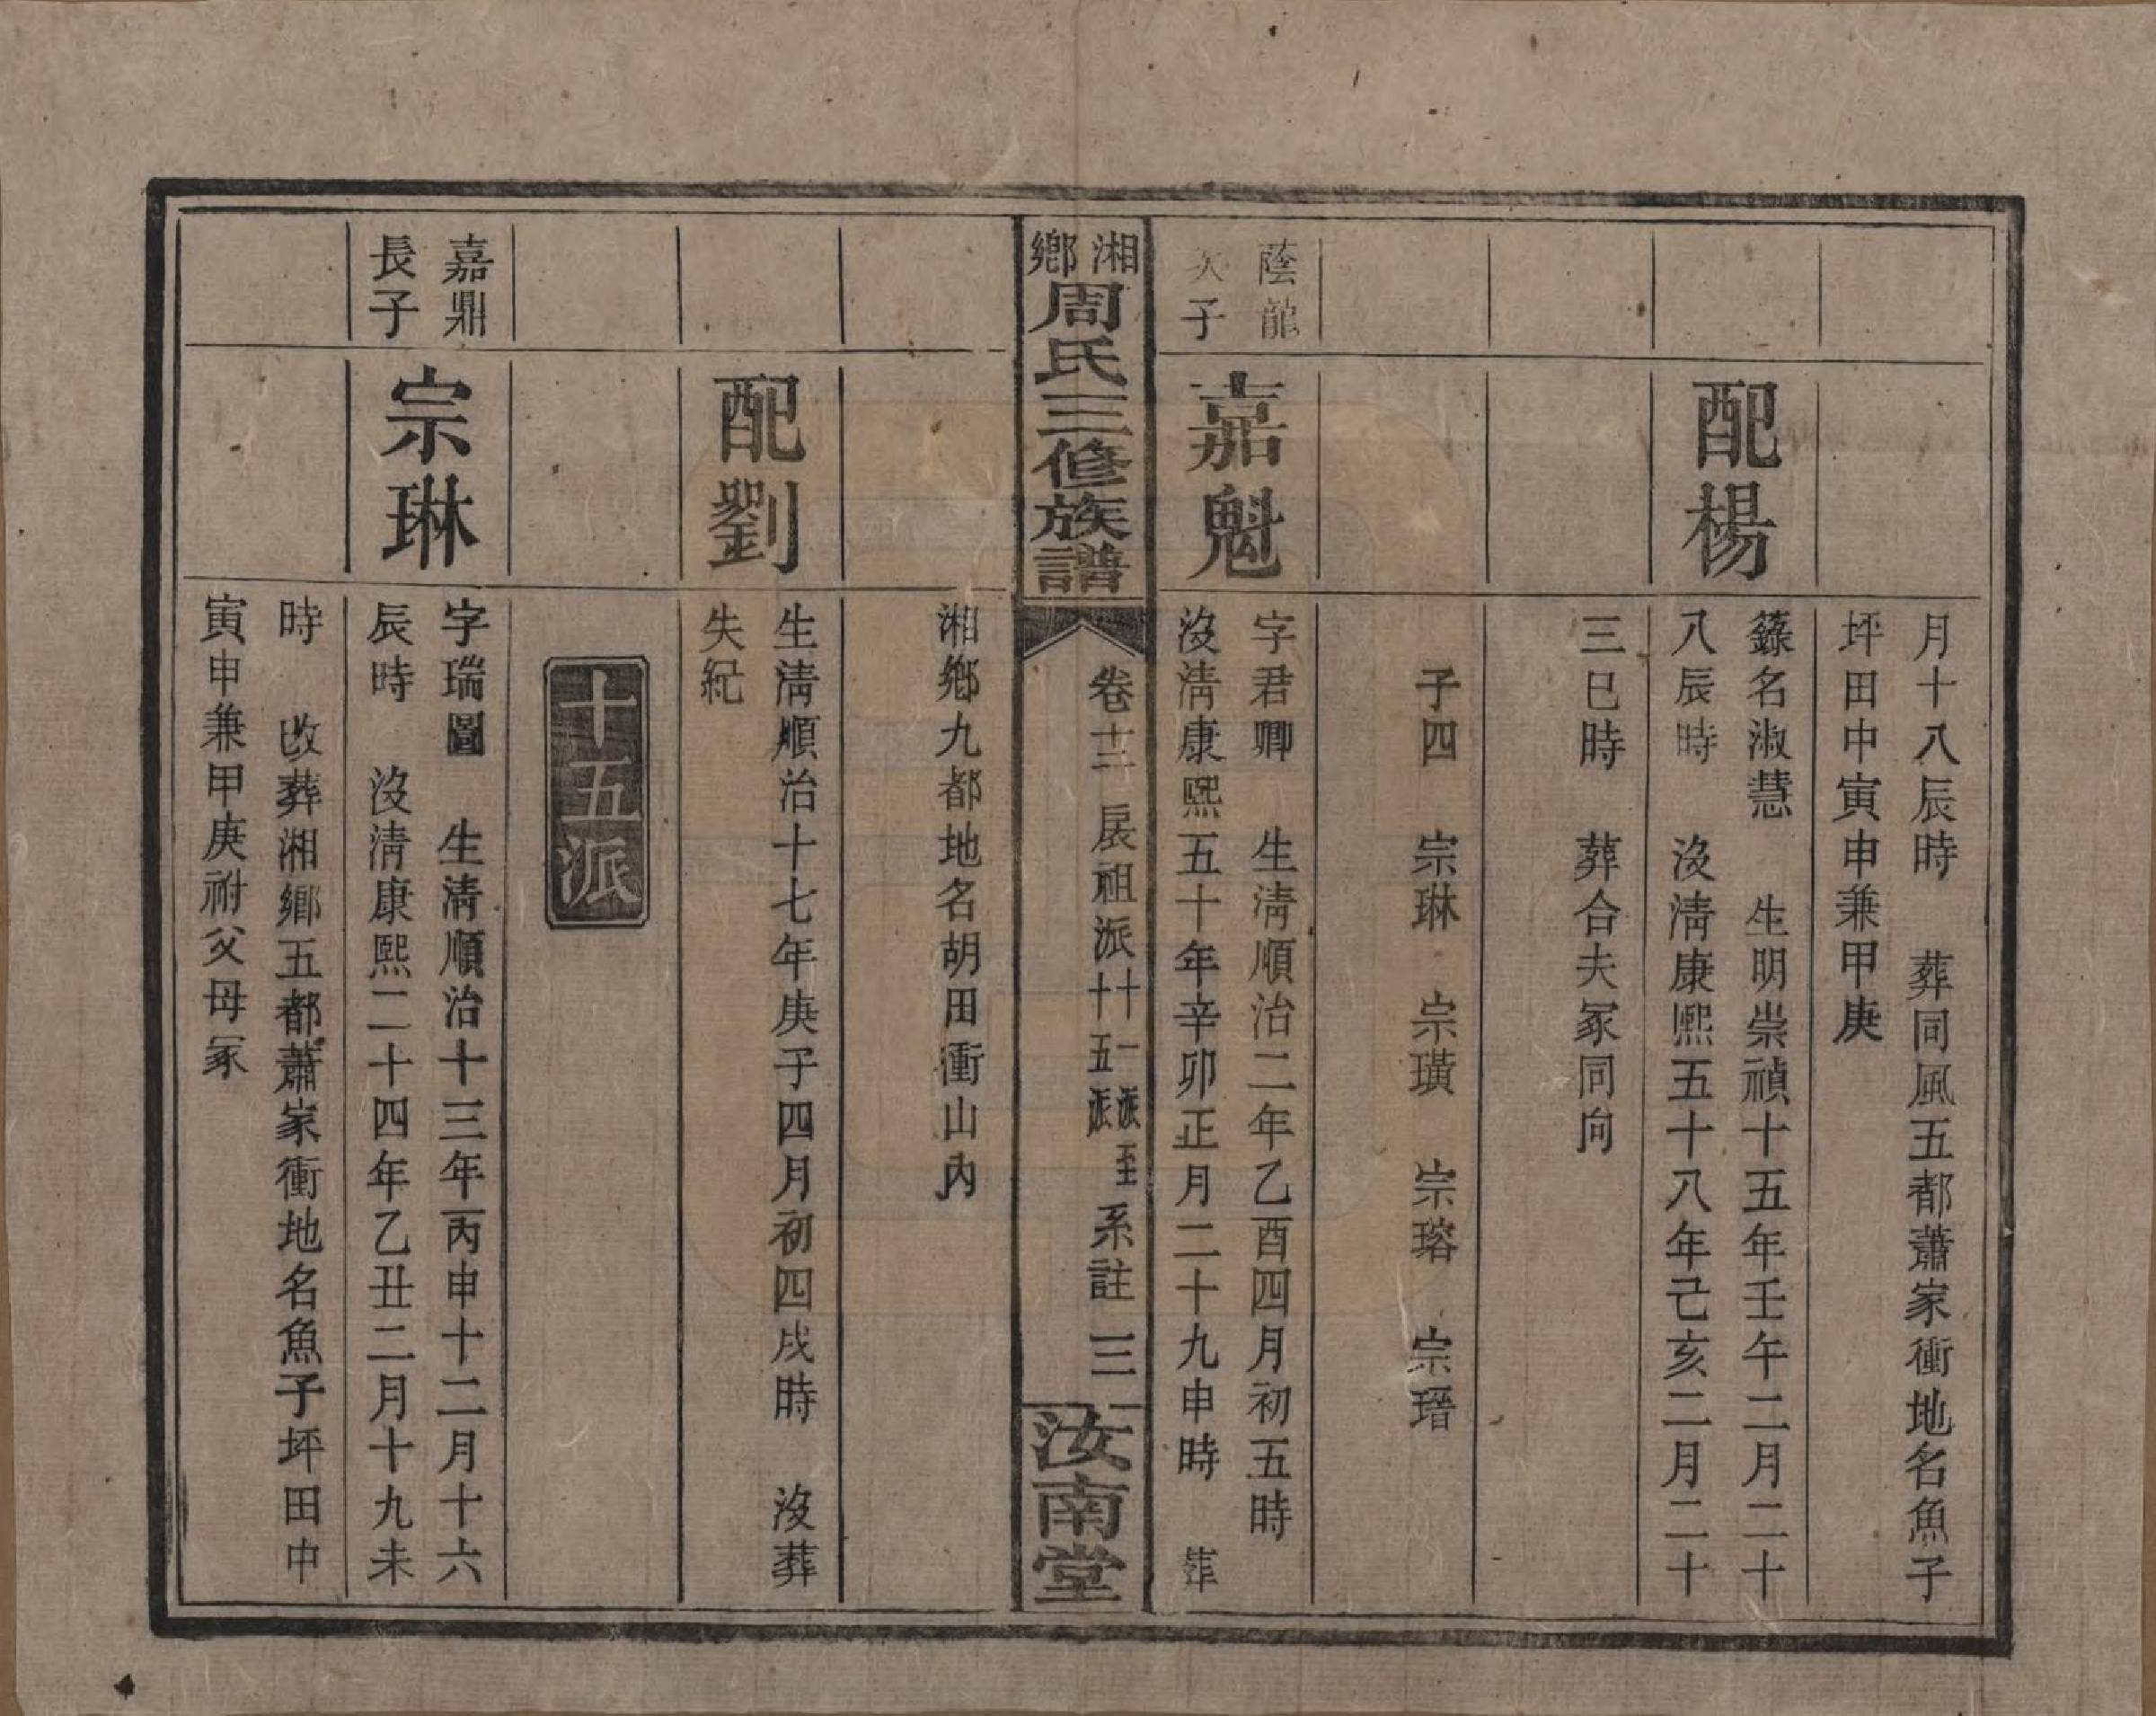 月十八辰時　葬同風五都蕭家衝地名魚子
坪田中寅申兼甲庚
配楊
籙名淑慧　生明崇禎十五年壬午二月二十
八辰時　沒淸康熙五十八年己亥二月二十
三巳時　葬合夫冢同向
子四　宗琳　宗璜　宗瑢　宗瑨
蔭龍
次子
嘉魁
字君卿　生淸順治二年乙酉四月初五時
沒淸康熙五十年辛卯正月二十九申時　葬
湘鄉
周氏三修族譜
卷十二　扆祖派十一派至十五派系註　三
汝南堂
湘鄉九都地名胡田衝山內
配劉
生淸順治十七年庚子四月初四戌時　沒葬
失紀
十五派
嘉鼎
長子
宗琳
字瑞圖　生淸順治十三年丙申十二月十六
辰時　沒淸康熙二十四年乙丑二月十九未
時　改葬湘鄉五都蕭家衝地名魚子坪田中
寅申兼甲庚祔父母冢